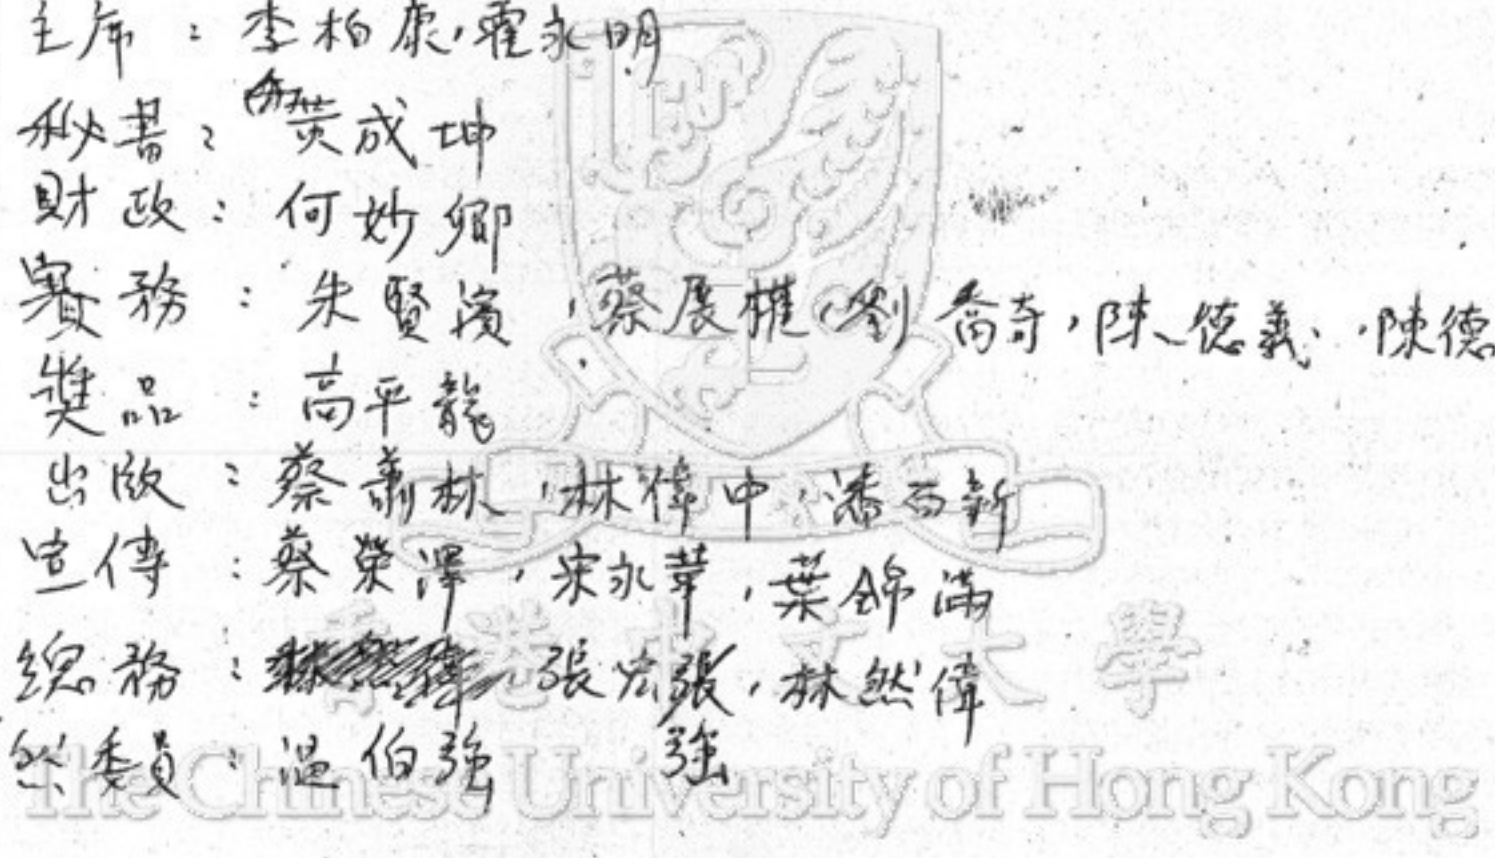 主席：李柏康，霍永明
秘書：黃成坤
財政：何妙卿
賽務：朱賢濱，蔡展權，劉喬奇，陳德義，陳德
獎品：高平龍
出版：蔡蕭林，林偉中，潘百新
宣傳：蔡榮澤，宋永華，葉錦滿
總務：張宏張，林然偉
委員：溫伯強 強
香港中文大學
The Chinese University of Hong Kong